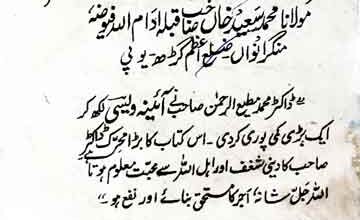 مولانا محمد سعید خاں صاحب قبلہ ادام اللہ فیوضہٗ
منگرانواں۔ ضلع اعظم گڑھ۔ یو پی
”ڈاکٹر محمد مطیع الرحمٰن صاحب نے آئینہ ویسی لکھ کر
ایک بڑی کمی پوری کردی۔ اس کتاب کا بڑا محرک ڈاکٹر
صاحب کا دینی شغف اور اہل اللہ سے محبت معلوم ہوتا ہے
اللہ جل شانہٗ اجر کا مستحق بنائے اور نفع ہو۔“